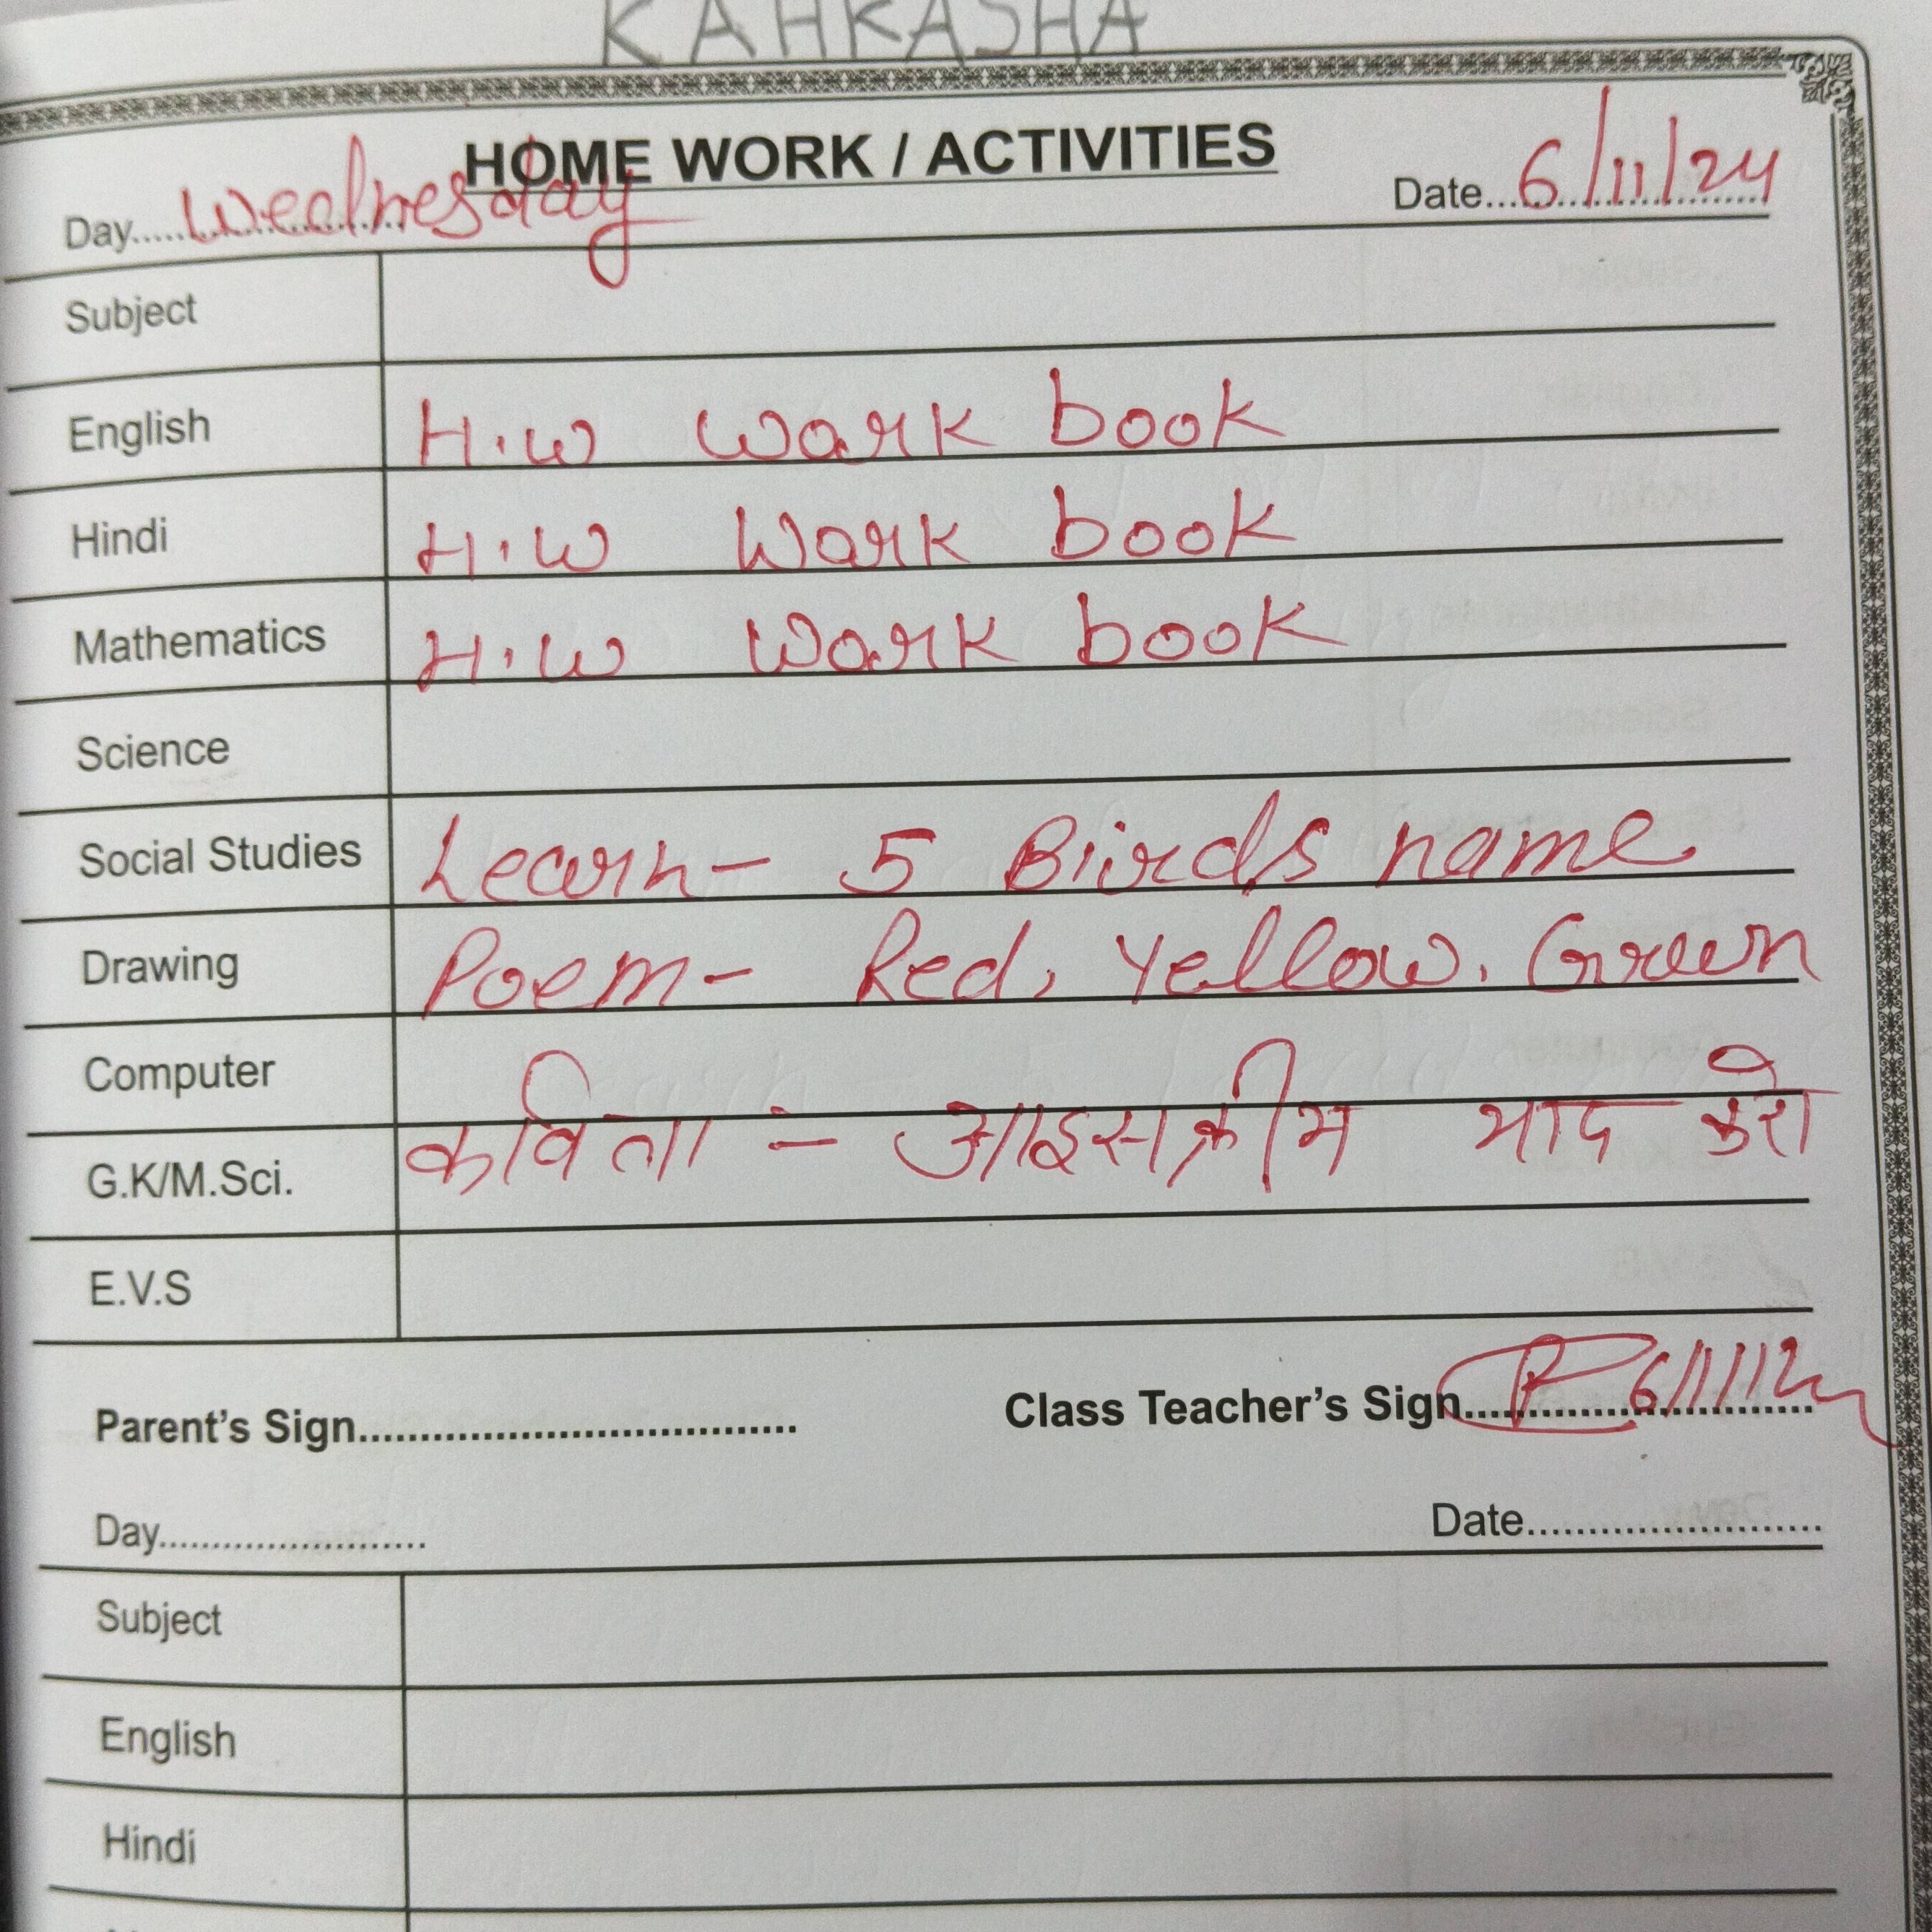 KAHKASHA
HOME WORK / ACTIVITIES
Day..... Wednesday Date... 6/11/24
Subject
English H.W Work book
Hindi H.W Work book
Mathematics H.W Work book
Science
Social Studies Learn- 5 Birds name
Drawing Poem- Red, Yellow, Green
Computer
G.K/M.Sci. कविता - आइसक्रीम याद करो
E.V.S
Parent's Sign................................... Class Teacher's Sign............................
Day...................... Date.........................
Subject
English
Hindi